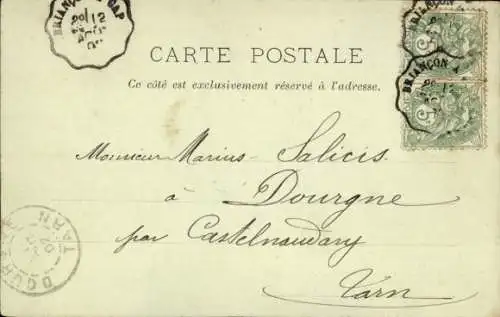 BRIANÇON À GAP
CARTE POSTALE
Ce côté est exclusivement réservé à l'adresse.
BRIANÇON
5
BRIANÇON
5
Monsieur Marius Salicis
à Dourgne
par Castelnaudary
Tarn
DOURGNE
TARN